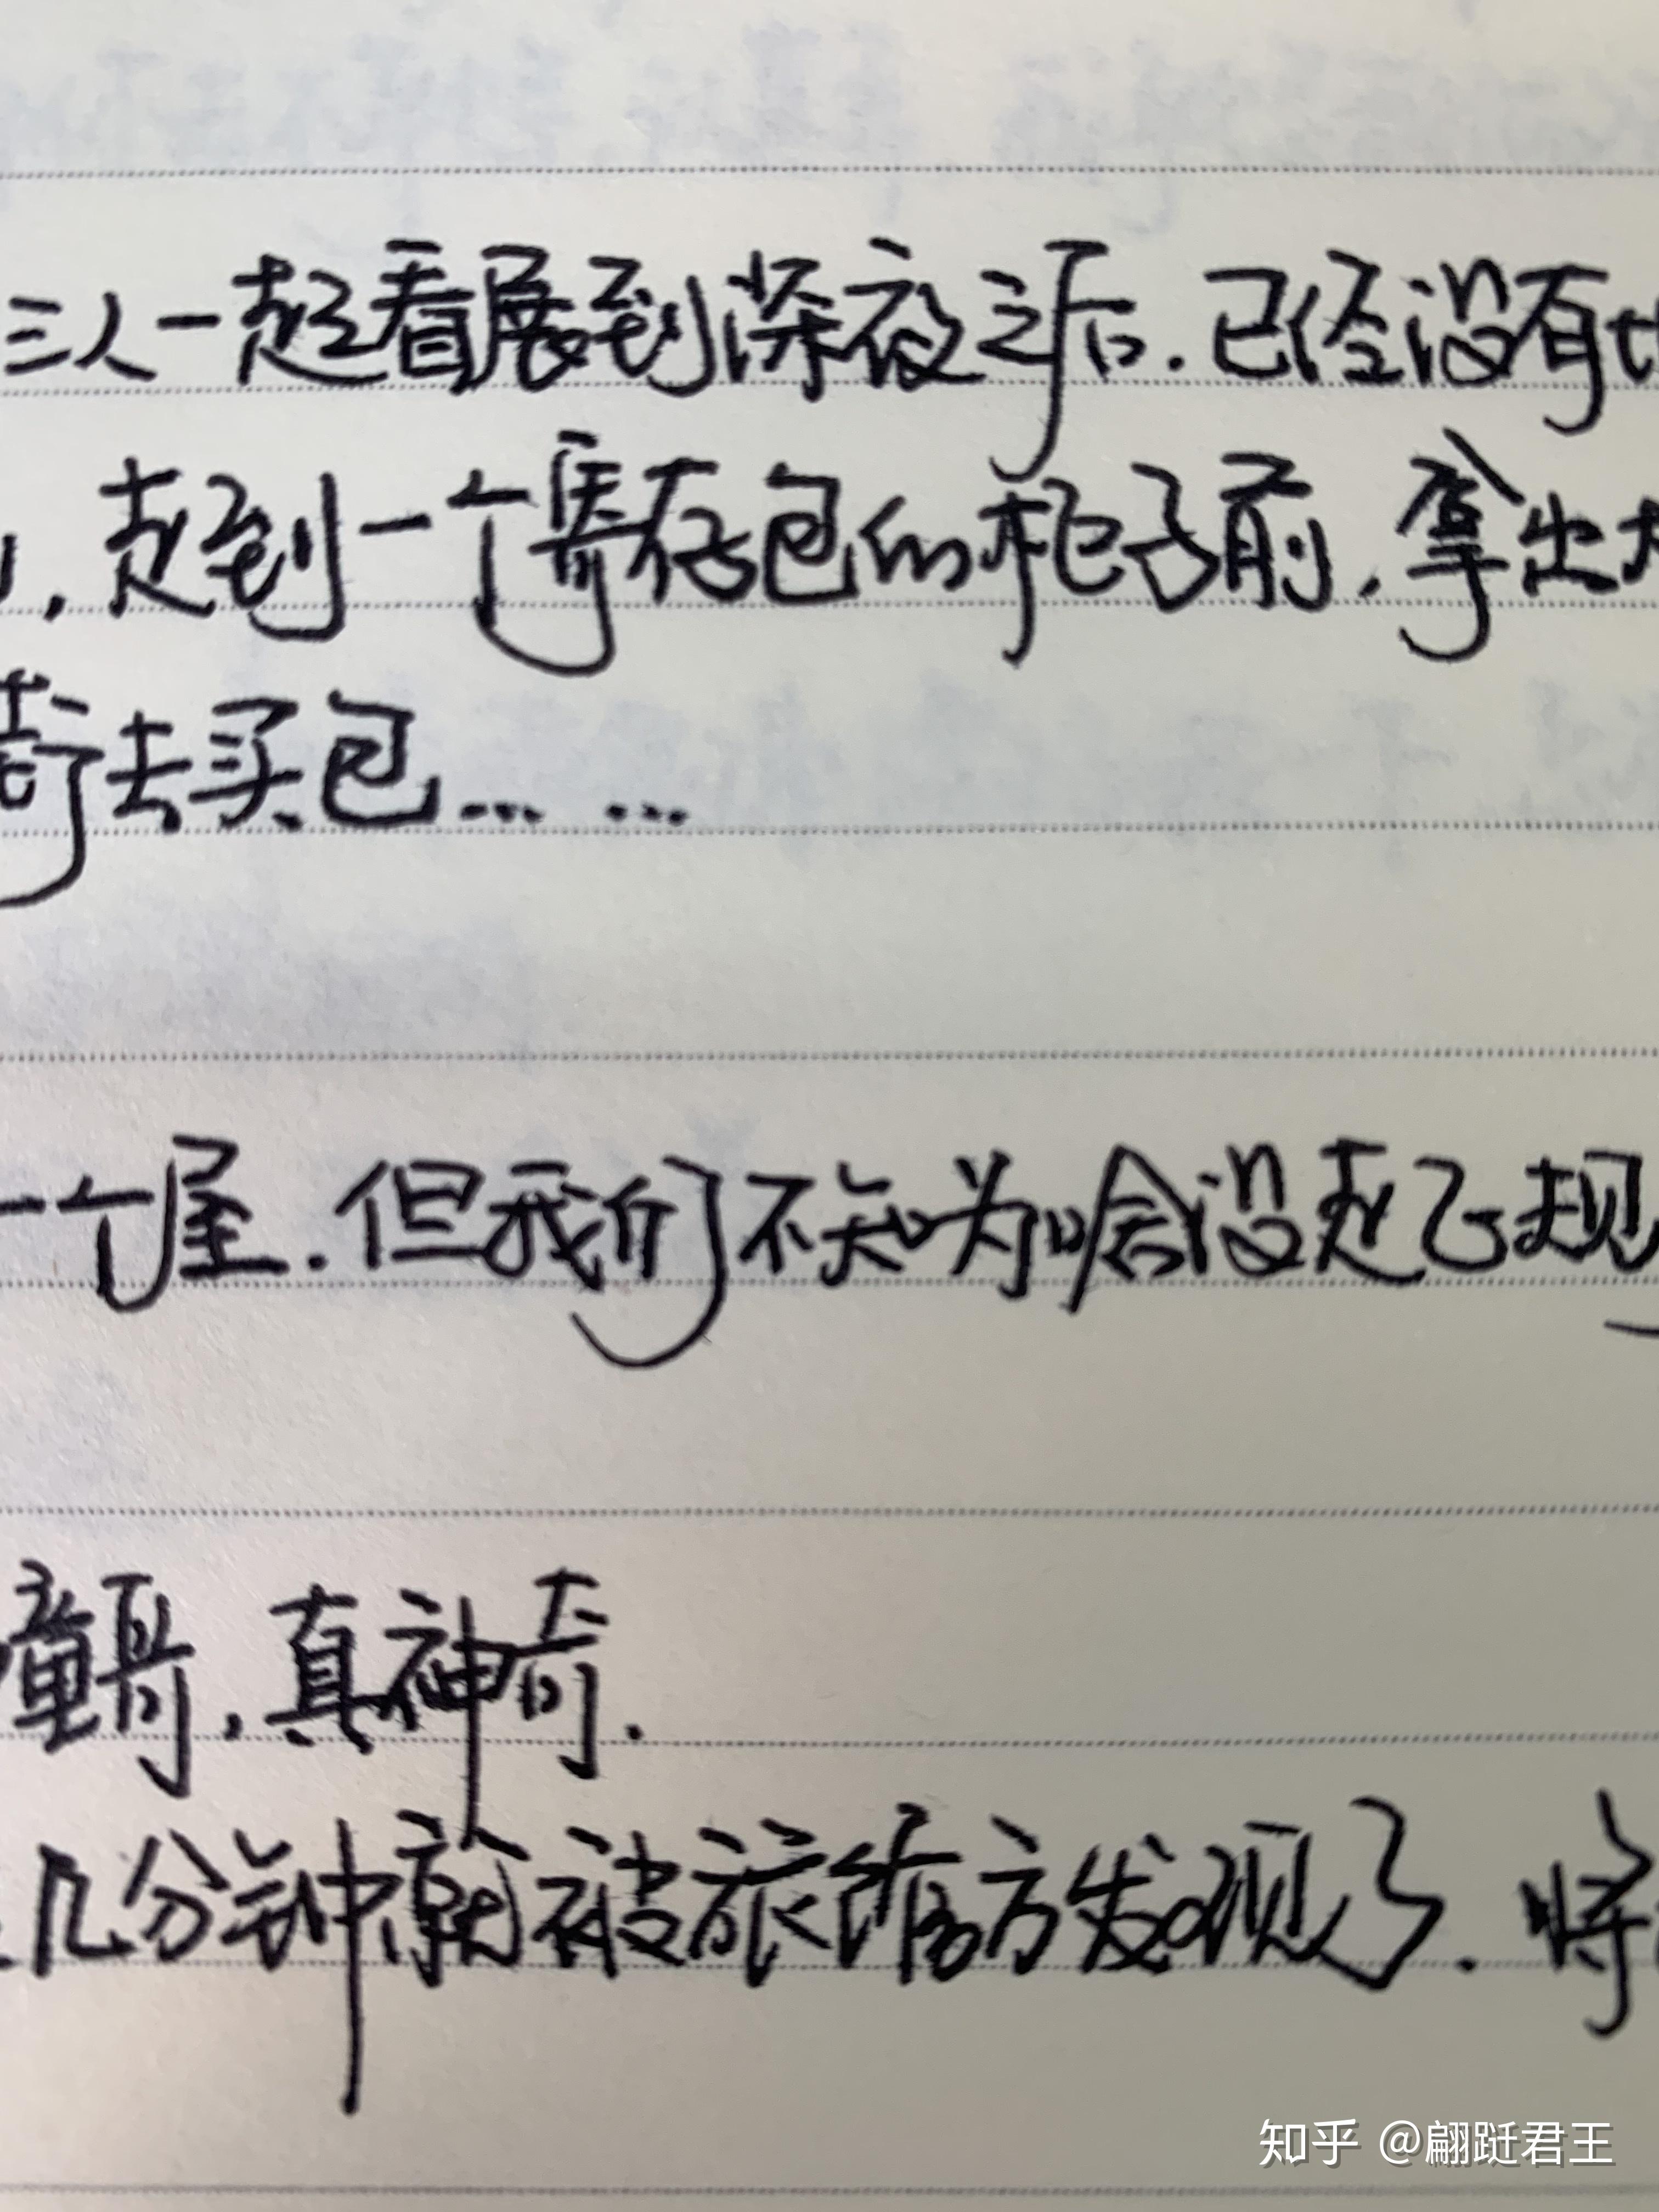 三人一起看展到深夜之后.已经没有
,走到一个寄存包的柜子前,拿出
去买包……
一个屋.但我们不知为啥没走已规
瞳哥,真神奇.
几分钟就被旅游方发现了.将
知乎 @翩跹君王